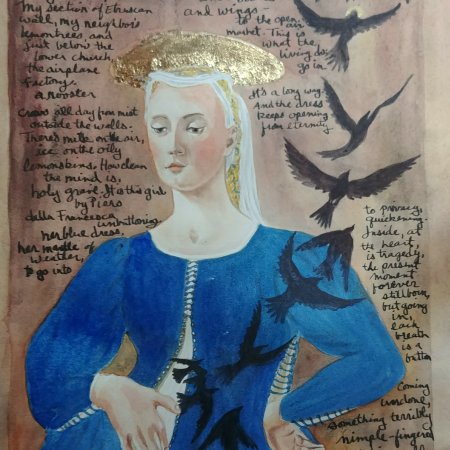 My section of Etruscan
wall, my neighbors
lemontrees, and
just below the
lower church,
the airplane
factory.
A rooster
crows all day from mist
outside the walls.
There's milk on the air,
ice on the oily
lemonskins. How clean
the mind is,
holy grave. It is this girl
by Piero
della Francesca,
unbuttoning
her blue dress,
her mantle of
weather,
to go into
and wings—
to the open air
market. This is
what the
living do:
go in.
It's a long way.
And the dress
keeps opening
from eternity
to privacy,
quickening.
Inside, at
the heart,
is tragedy,
the present
moment
forever
stillborn,
but going
in,
each
breath
is a
button
Coming
undone,
something terribly
nimble-fingered